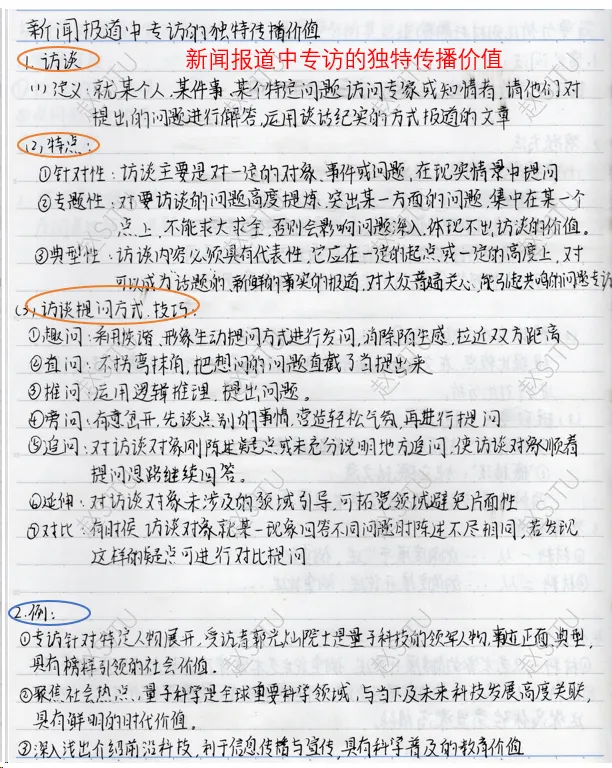 新闻报道中专访的独特传播价值
新闻报道中专访的独特传播价值
1. 访谈
(1) 定义: 就某个人、某件事、某个特定问题访问专家或知情者, 请他们对
提出的问题进行解答、运用谈话纪实的方式报道的文章
(2) 特点:
①针对性: 访谈主要是对一定的对象、事件或问题, 在现实情景中提问
②专题性: 对要访谈的问题高度提炼、突出某一方面的问题, 集中在某一个
点上, 不能求大求全, 否则会影响问题深入, 体现不出访谈的价值。
③典型性: 访谈内容必须具有代表性, 它应在一定的起点或一定的高度上, 对
可以成为话题的、新鲜的事实的报道, 对大众普遍关心、能引起共鸣的问题专访
(3) 访谈提问方式、技巧:
①趣问: 采用诙谐、形象生动提问方式进行发问, 消除陌生感、拉近双方距离
②直问: 不拐弯抹角, 把想问的问题直截了当提出来
③推问: 运用逻辑推理, 提出问题。
④旁问: 有意岔开, 先谈点别的事情, 营造轻松气氛, 再进行提问
⑤追问: 对访谈对象刚陈述疑点或未充分说明地方追问, 使访谈对象顺着
提问思路继续回答。
⑥延伸: 对访谈对象未涉及的领域引导, 可拓宽领域避免片面性
⑦对比: 有时候访谈对象就某一现象回答不同问题时陈述不尽相同, 若发现
这样的疑点可进行对比提问
2. 例:
①专访针对特定人物展开, 受访者郭光灿院士是量子科技的领军人物, 事迹正面、典型,
具有榜样引领的社会价值.
②聚焦社会热点, 量子科学是全球重要科学领域, 与当下及未来科技发展高度关联,
具有鲜明的时代价值。
③深入浅出介绍前沿科技, 利于信息传播与宣传, 具有科学普及的教育价值